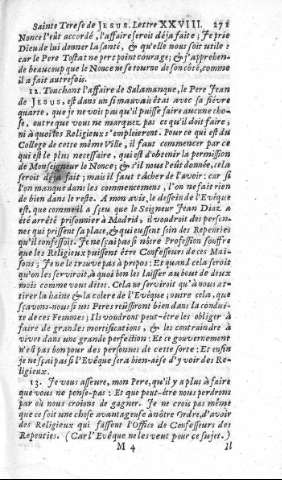 Sainte Terese de JESUS. Lettre XXVIII. 271
Nonce l'eût accordé, l'affaire seroit déja faite; Je prie
Dieu de lui donner la santé, & qu'elle nous soit utile:
car le Pere Tostat ne pert point courage; & j'apprehen-
de beaucoup que le Nonce ne se tourne de son côté, comme
il a fait autrefois.
12. Touchant l'affaire de Salamanque, le Pere Jean
de JESUS, est dans un si mauvais état avec sa fiévre
quarte, que je ne voi pas qu'il puisse faire aucune cho-
se, outre que vous ne marquez pas ce qu'il doit faire;
ni à quoi les Religieux s'emploieront. Pour ce qui est du
College de cette même Ville, il faut commencer par ce
qui est le plus necessaire, qui est d'obtenir la permission
de Monseigneur le Nonce; & s'il nous l'eût donnée, cela
seroit déja fait; mais il faut tâcher de l'avoir: car si
l'on manque dans les commencemens, l'on ne fait rien
de bien dans le reste. A mon avis, le dessein de l'Evêque
est, que comme il a sçeu que le Seigneur Jean Diaz a
été arrêté prisonnier à Madrid; il voudroit des person-
nes qui prissent sa place, & qui eussent soin des Repenties
qu'il confessoit. Je ne sçai pas si nôtre Profession souffre
que les Religieux puissent être Confesseurs de ces Mai-
sons; Je ne le trouve pas à propos: Et quand cela seroit
qu'on les serviroit, à quoi bon les laisser au bout de deux
mois comme vous dites. Cela ne serviroit qu'à nous at-
tirer la haine & la colere de l'Evêque; outre cela, que
sçavons-nous si nos Peres réüssiront bien dans la condui-
te de ces Femmes; Ils voudront peut-être les obliger à
faire de grandes mortifications, & les contraindre à
vivre dans une grande perfection: Et ce gouvernement
n'est pas bon pour des personnes de cette sorte: Et enfin
je ne sçai pas si l'Evêque sera bien-aise d'y voir des Re-
ligieux.
13. Je vous asseure, mon Pere, qu'il y a plus à faire
que vous ne pense-pas: Et que peut-être nous perdrons
par où nous croions de gagner. Je ne crois pas même
que ce soit une chose avantageuse à nôtre Ordre, d'avoir
des Religieux qui fassent l'Office de Confesseurs des
Repenties. (Car l'Evêque ne les veut pour ce sujet.)
M 4 Il